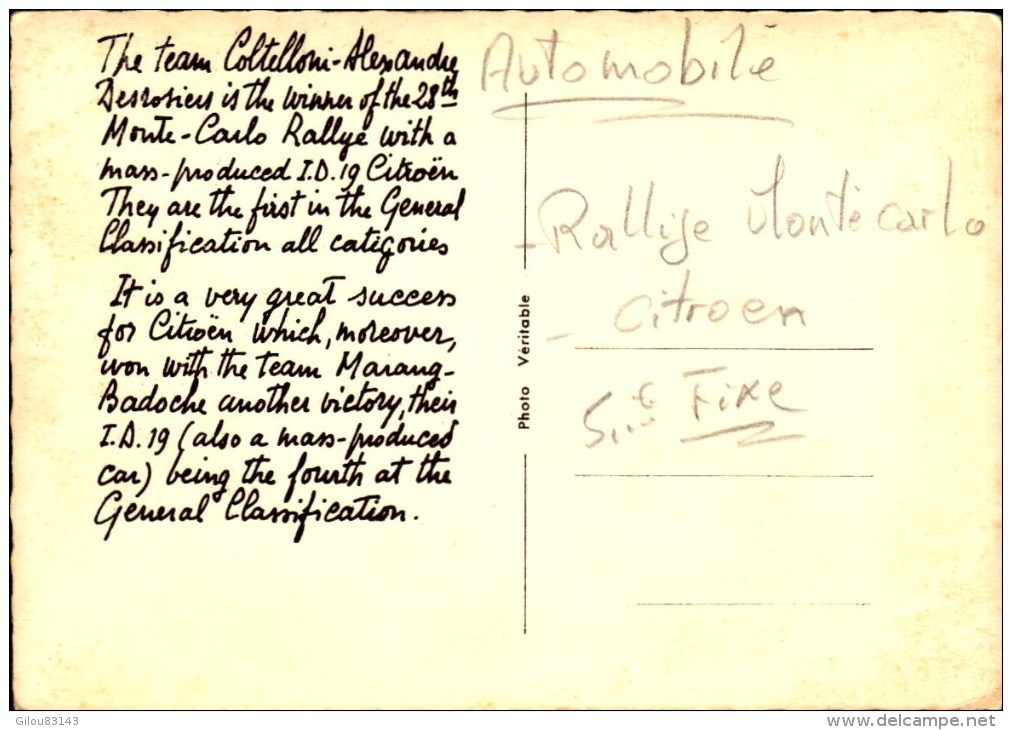 The team Coltelloni-Alexandre
Desrosiers is the winner of the 28th
Monte-Carlo Rallye with a
mass-produced I.D.19 Citroën
They are the first in the General
Classification all categories
It is a very great success
for Citroën which, moreover,
won with the team Marang-
Badoche another victory, their
I.D.19 (also a mass-produced
car) being the fourth at the
General Classification.
Photo Véritable
Automobile
- Rallije Monte carlo
- Citroen
Fixe
Gilou83143
www.delcampe.net